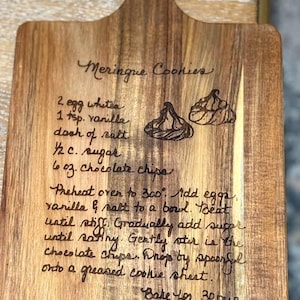 Meringue Cookies
2 egg whites
1 tsp. vanilla
dash of salt
½ c. sugar
6 oz. chocolate chips
Preheat oven to 300°. Add eggs,
vanilla & salt to a bowl. Beat
until stiff. Gradually add sugar
until satiny. Gently stir in the
chocolate chips. Drop by spoonful
onto a greased cookie sheet.
Bake for 30